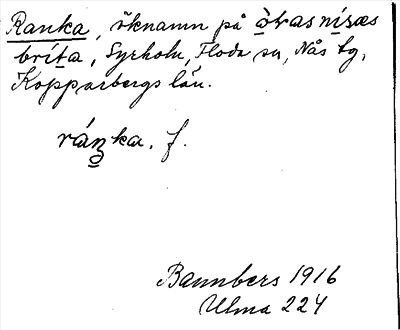 Ranka, öknamn på òtrasnísæs
bríta, Syrholn, Floda sn, Nås tg,
Kopparbergs län.
ráŋka. f.
Bannbers 1916
Ulma 224